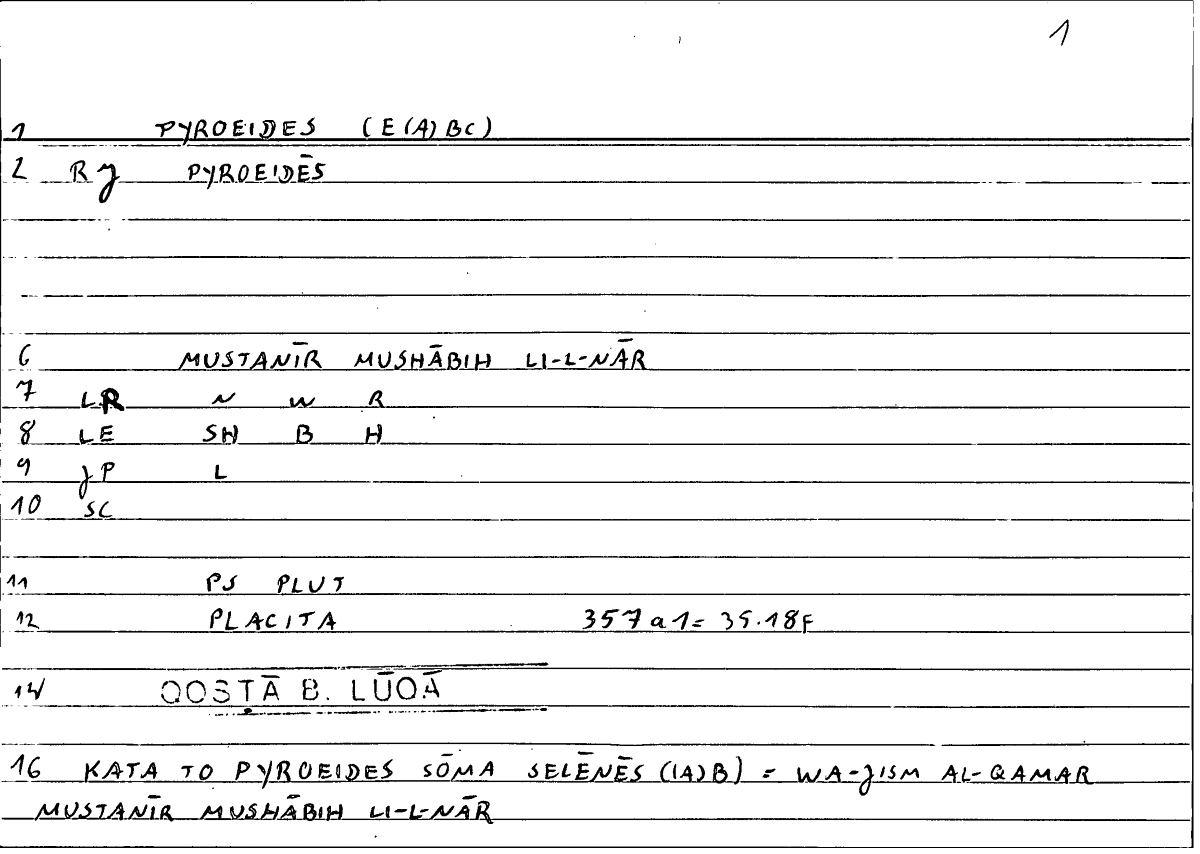 1
1 PYROEIDES (E(A)BC)
2 RJ PYROEIDĒS
6 MUSTANĪR MUSHĀBIH LI-L-NĀR
7 LR N W R
8 LE SH B H
9 JP L
10 SC
11 PS PLUT
12 PLACITA 357a1= 35.18F
14 QOSṬĀ B. LŪQĀ
16 KATA TO PYROEIDES SŌMA SELĒNĒS (IA)B) = WA-JISM AL-QAMAR
MUSTANĪR MUSHĀBIH LI-L-NĀR